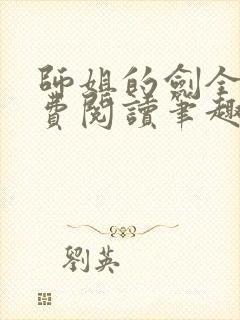 師姐的劍全
費閱讀筆趣
劉英